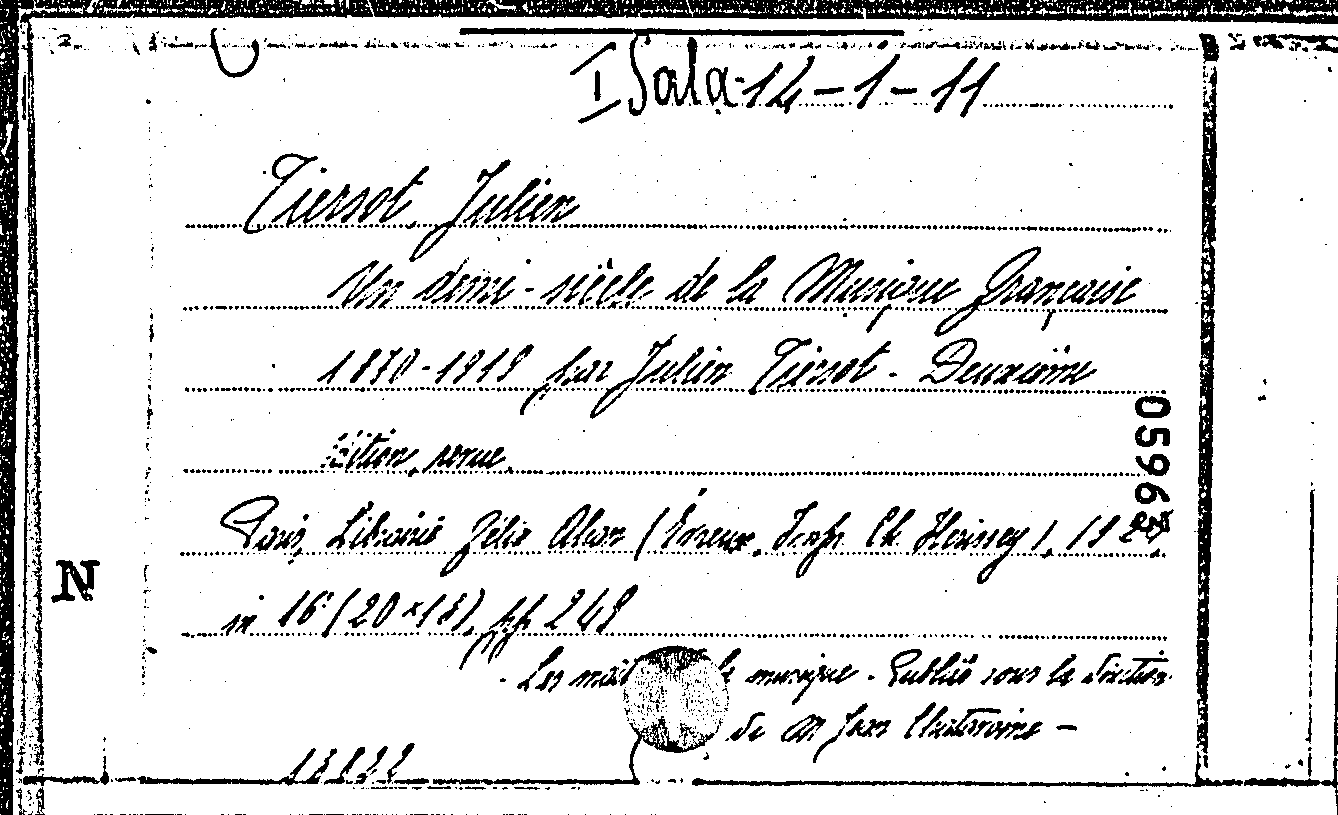 I Sala 14-1-11
Tiersot, Julien
Un demi-siècle de la Musique Française
1870-1919 par Julien Tiersot. Deuxième
édition, revue.
05963
Paris, Librairie Félix Alcan (Évreux, Imp. Ch. Hérissey), 1924
N
in 16° (20 x 15), pp 249
Les musique. Publiés sous la direction
de M Jean Chantavoine -